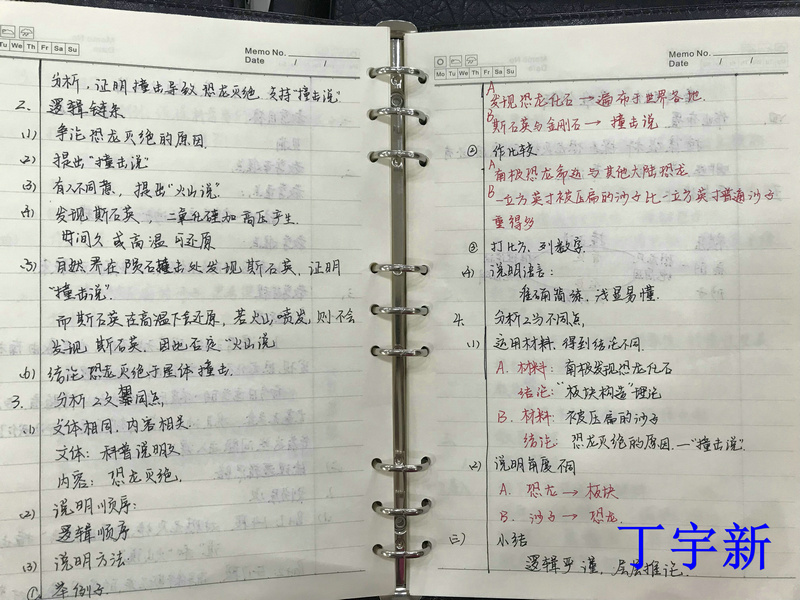 Tu We Th Fr Sa Su
Memo No.
Date / /
分析,证明撞击导致恐龙灭绝,支持"撞击说"
2. 逻辑链条
(1) 争论恐龙灭绝的原因.
(2) 提出"撞击说"
(3) 有人不同意,提出"火山说"
(4) 发现斯石英、二氧化硅加高压产生.
时间久或高温可还原
(5) 自然界在陨石撞击处发现斯石英,证明
"撞击说".
而斯石英在高温下会还原,若火山喷发则不会
发现斯石英,因此否定"火山说
(6) 结论恐龙灭绝于星体撞击.
3. 分析2文相同点
(1) 文体相同,内容相关.
文体:科普说明文
内容:恐龙灭绝.
(2) 说明顺序:
逻辑顺序
(3) 说明方法
① 举例子
Mo Tu We Th Fr Sa Su
Memo No.
Date / /
A 发现恐龙化石→遍布于世界各地.
B 斯石英与金刚石→撞击说
② 作比较
A 南极恐龙命运与其他大陆恐龙
B 一立方英寸被压扁的沙子比一立方英寸普通沙子
重得多
③ 打比方、列数字
(4) 说明语言:
准确简练,浅显易懂.
4. 分析2文不同点,
(1) 运用材料,得到结论不同.
A. 材料:南极发现恐龙化石
结论:"板块构造"理论
B. 材料:被压扁的沙子
结论:恐龙灭绝的原因—"撞击说".
(2) 说明角度不同
A. 恐龙→板块
B. 沙子→恐龙.
(三) 小结
逻辑严谨,层层推论.
丁宇新